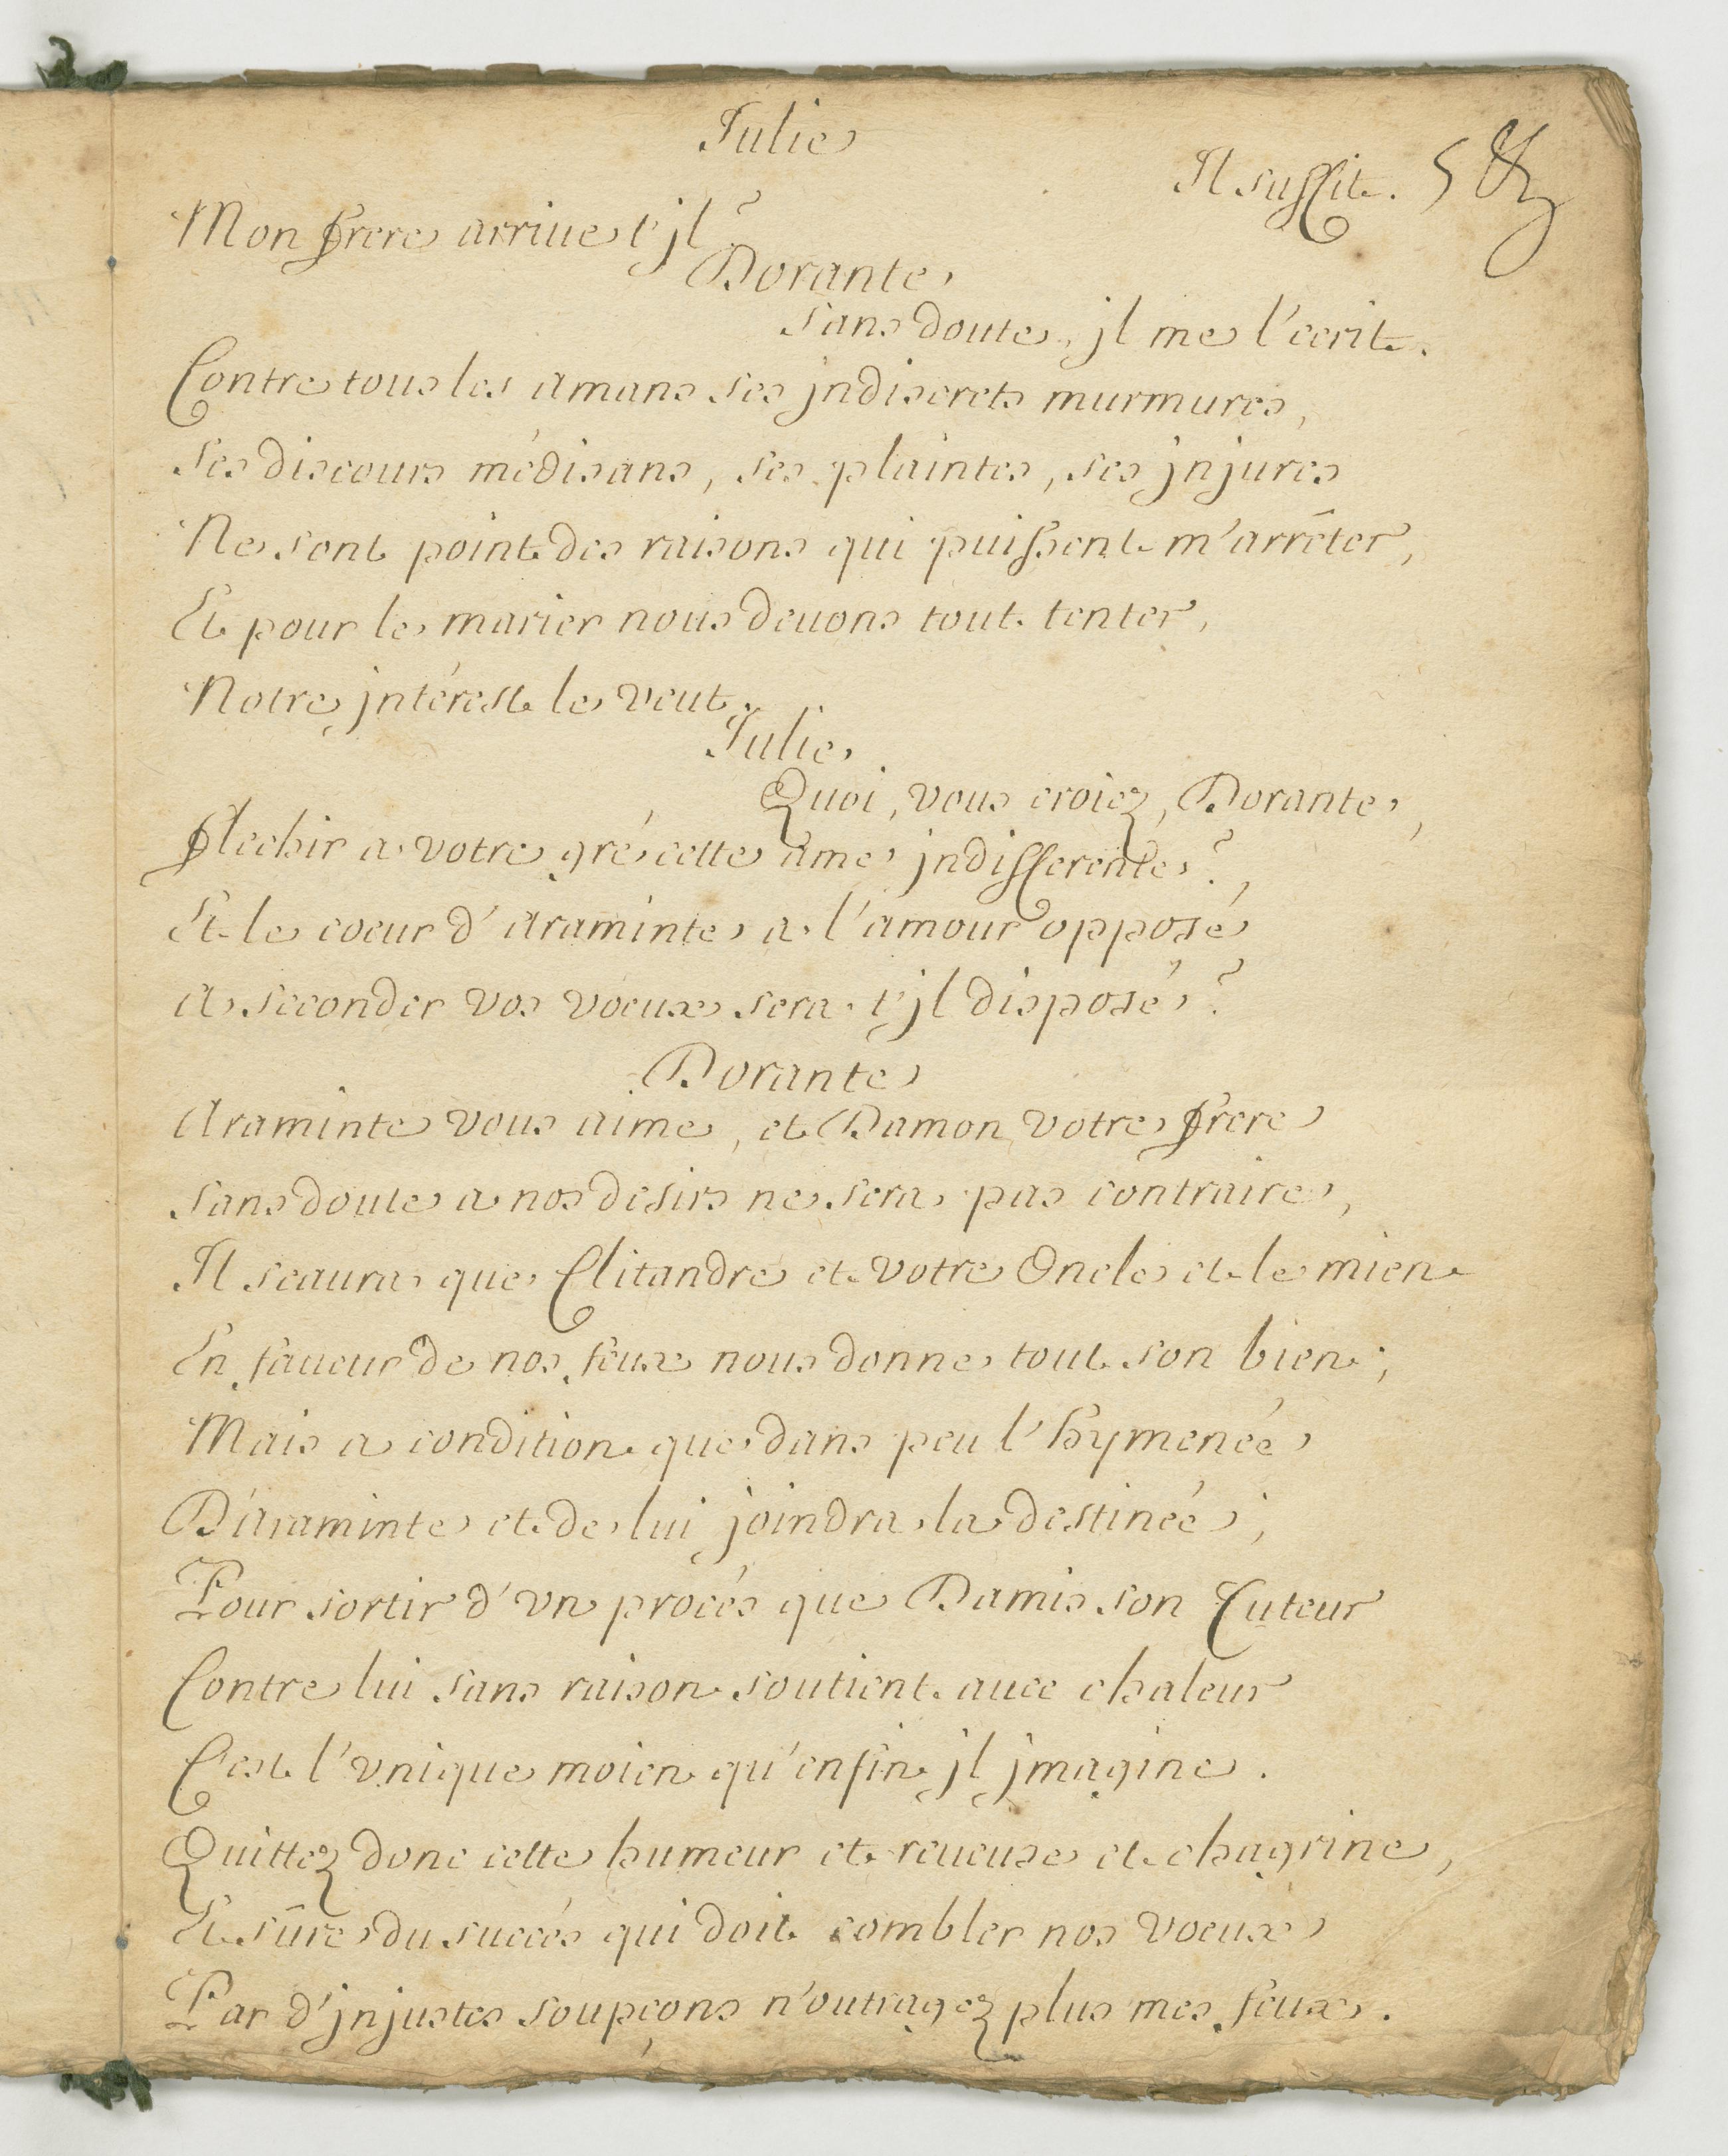 Julie
Il suffit. 5
Mon frere arriue t'jl?
Dorante
sans doute, jl me l'ecrit.
Contre tous les amans ses jndiscrets murmures,
ses discours médisans, ses plaintes, ses jnjures
Ne sont point des raisons qui puissent m'arrêter,
Et pour le marier nous deuons tout tenter,
Notre jntérest le veut.
Julie
Quoi, vous croiez, Dorante,
flechir a votre gré cette ame jndifferente?,
Et le coeur d'araminte a l'amour opposé
a seconder vos voeux sera t'jl disposé?
Dorante
Araminte vous aime, et Damon votre frere
sans doute a nos desirs ne sera pas contraire,
Il scaura que Clitandre et votre Oncle et le mien
En faueur de nos feux nous donne tout son bien;
Mais a condition que dans peu l'hymenée
D'araminte et de lui joindra la destinée;
Pour sortir d'vn procés que Damis son Tuteur
Contre lui sans raison soutient auec chaleur
C'est l'vnique moien qu'enfin jl jmagine.
Quittez donc cette humeur et reueuse et chagrine,
Et sûre du succés qui doit combler nos voeux
Par d'jnjustes soupçons n'outragez plus mes feux.